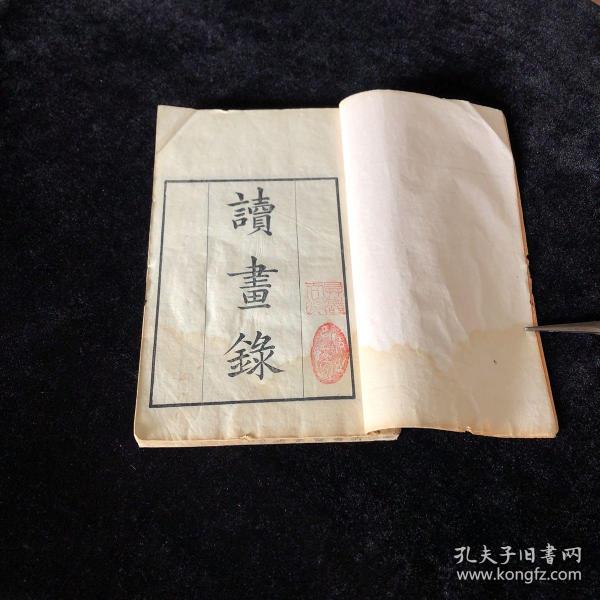 讀畫錄
孔夫子旧书网
www.kongfz.com